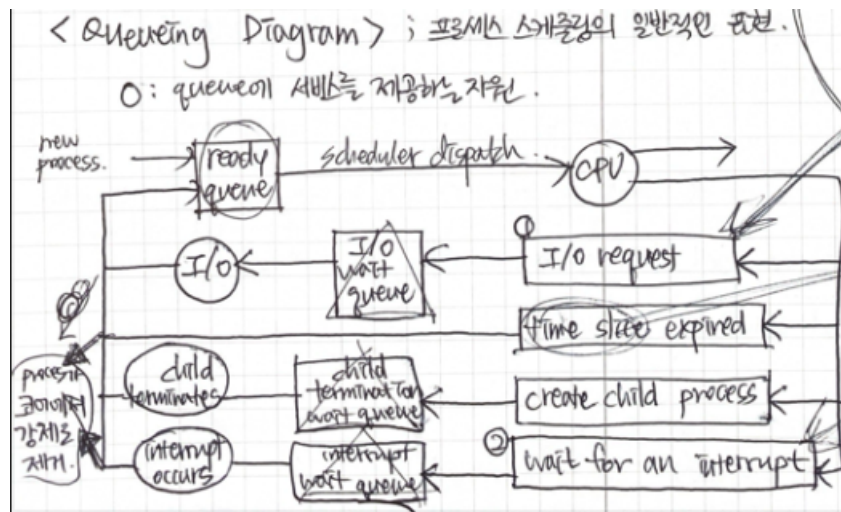 < Queueing Diagram > ; 프로세스 스케줄링의 일반적인 표현.
O : queue에 서비스를 제공하는 자원.
new
process.
ready
queue
scheduler dispatch.
CPU
I/O
I/O
wait
queue
①
I/O request
time slice expired
child
terminates
child
termination
wait queue
create child process
process가
코어에서
강제로
제거.
interrupt
occurs
interrupt
wait queue
②
wait for an interrupt